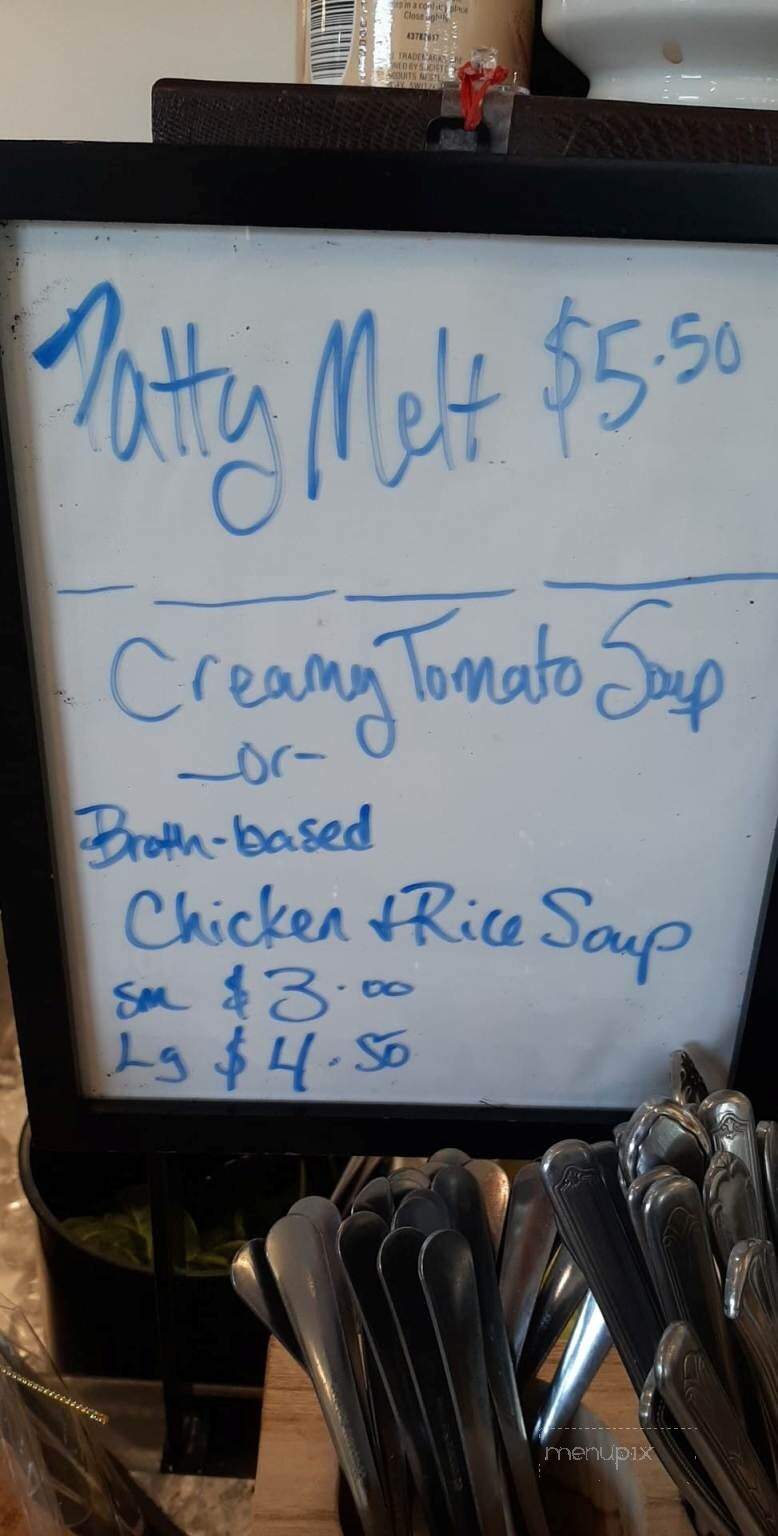 Close tightly
43787617
Patty Melt $5.50
Creamy Tomato Soup
-or-
Broth-based
Chicken + Rice Soup
sm $3.00
Lg $4.50
menupix